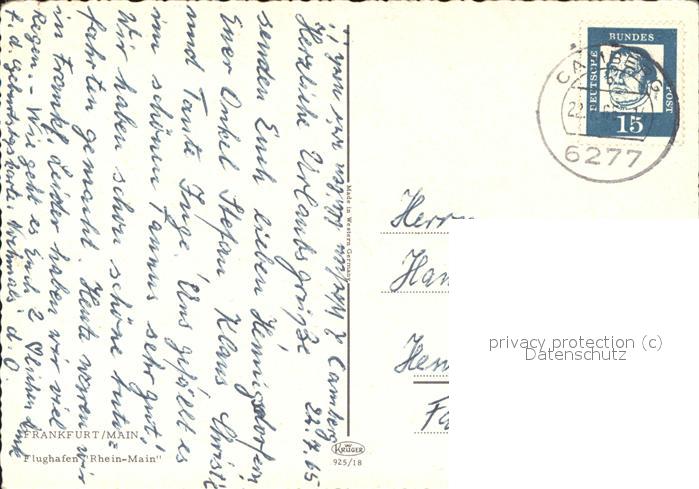 Camberg, 22.7.65
Herzliche Urlaubsgrüße
senden Euch lieben Hennigsdorfern
Euer Onkel Stefan Klaus Christl
und Tante Inge. Uns gefällt es
im schönen Taunus sehr gut.
Wir haben schon schöne Auto-
fahrten gemacht. Heute waren wir
in Frankf. Leider haben wir viel
Regen. – Wie geht es Euch 2
f. d. Geburtstagskarte. Nochmals
FRANKFURT/MAIN
Flughafen "Rhein-Main"
Made in Western Germany
KRÜGER
925/18
DEUTSCHE BUNDESPOST
15
CAMBERG
6277
Herrn
Han
Hen
privacy protection (c)
Datenschutz